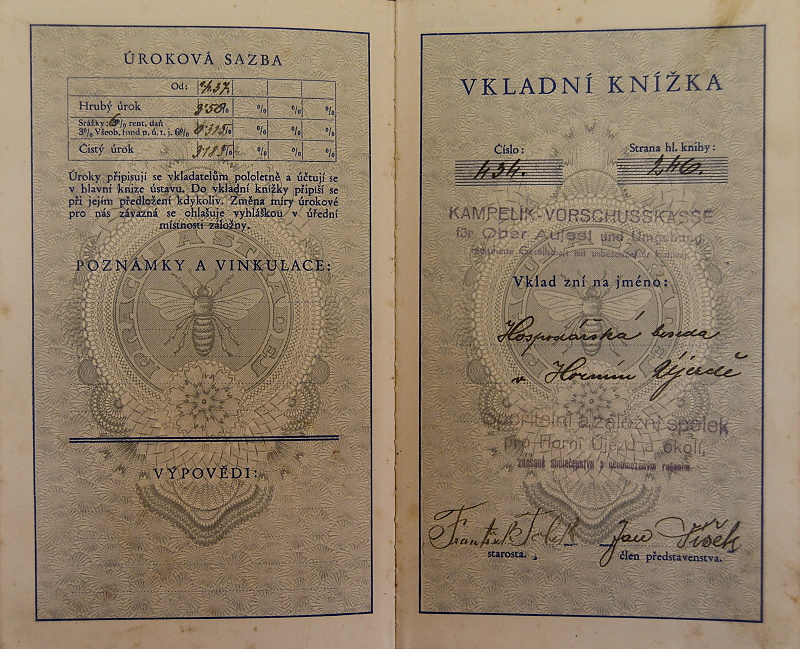 ÚROKOVÁ SAZBA
Od: 1/1.37.
Hrubý úrok 3·50% % % %
Srážky: 6% rent. daň
3% Všeob. fond p. ú. t. j. 6% 0·315% % % %
Čistý úrok 3·185% % % %
Úroky připisují se vkladatelům pololetně a účtují se
v hlavní knize ústavu. Do vkladní knížky připíší se
při jejím předložení kdykoliv. Změna míry úrokové
pro nás závazná se ohlašuje vyhláškou v úřední
místnosti záložny.
PRACUJ A STŘÁDEJ
POZNÁMKY A VINKULACE:
VÝPOVĚDI:
VKLADNÍ KNÍŽKA
Číslo: Strana hl. knihy:
434. 246.
KAMPELIK-VORSCHUSSKASSE
für Ober Aujest und Umgebung,
registrierte Genossenschaft mit unbeschränkter Haftung.
Vklad zní na jméno:
Hospodářská beseda
v Horním Újezdě
Spořitelní a záložní spolek
pro Horní Újezd a okolí,
zapsané společenstvo s neobmezeným ručením.
František Jan
starosta. člen představenstva.